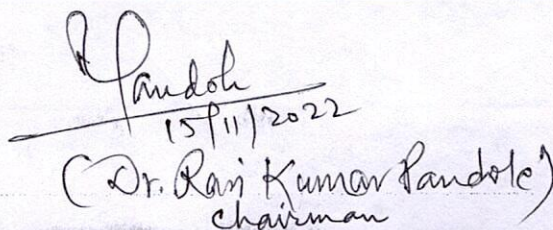 Pandole
15/11/2022
(Dr. Ravi Kumar Pandole)
Chairman